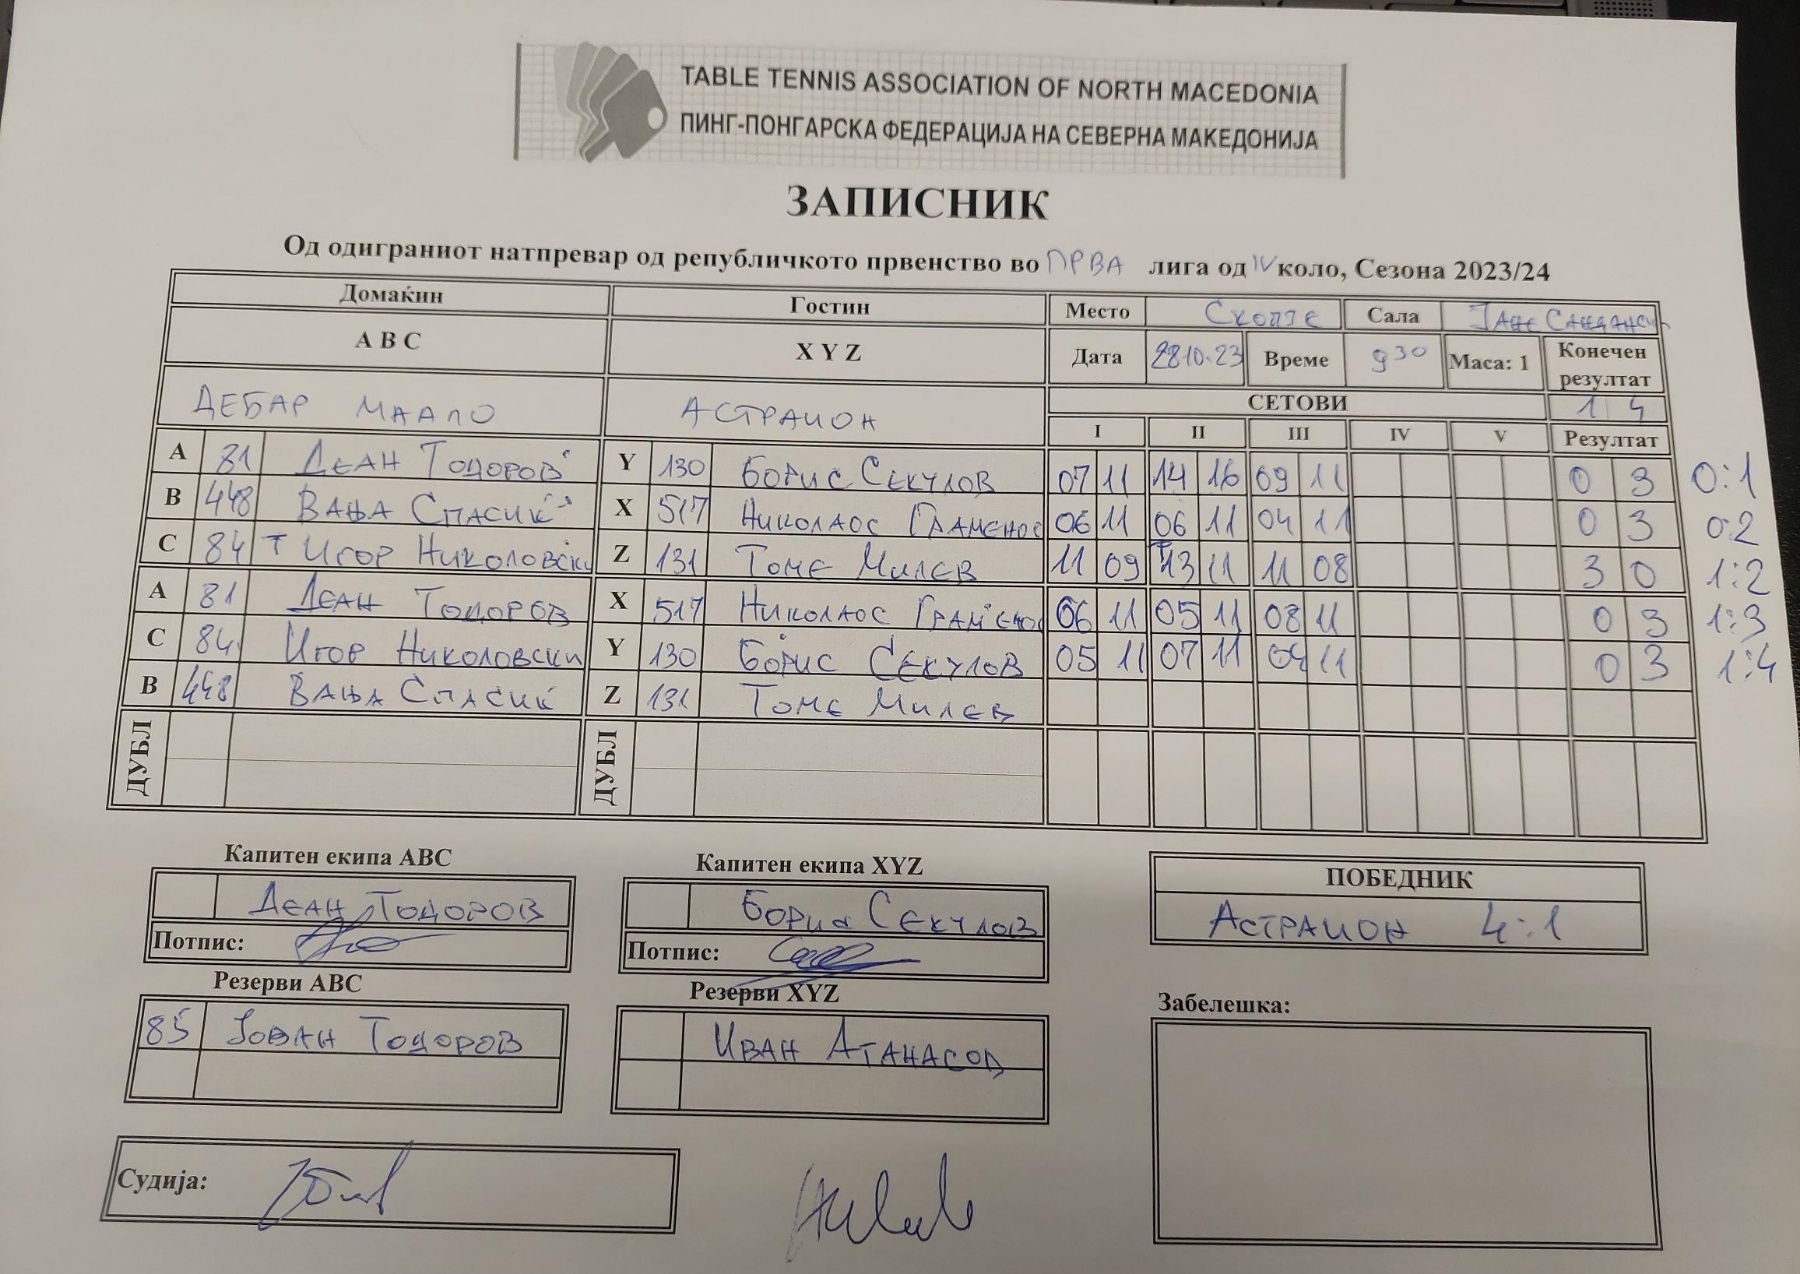 TABLE TENNIS ASSOCIATION OF NORTH MACEDONIA
ПИНГ-ПОНГАРСКА ФЕДЕРАЦИЈА НА СЕВЕРНА МАКЕДОНИЈА
ЗАПИСНИК
Од одиграниот натпревар од републичкото првенство во ПРВА лига од IV коло, Сезона 2023/24
Домаќин Гостин Место Скопје Сала Јане Сандански
A B C X Y Z Дата 28.10.23 Време 9 30 Маса: 1 Конечен резултат
ДЕБАР МААЛО АСТРАИОН СЕТОВИ 1 4
I II III IV V Резултат
A 81 Деан Тодоров Y 130 Борис Секулов 07 11 14 16 09 11 0 3 0:1
B 448 Вања Спасиќ X 517 Николаос Граменос 06 11 06 11 04 11 0 3 0:2
C 84 Т Игор Николовски Z 131 Томе Милев 11 09 Т 13 11 11 08 3 0 1:2
A 81 Деан Тодоров X 517 Николаос Граменос 06 11 05 11 08 11 0 3 1:3
C 84 Игор Николовски Y 130 Борис Секулов 05 11 07 11 04 11 0 3 1:4
B 448 Вања Спасиќ Z 131 Томе Милев
ДУБЛ ДУБЛ
Капитен екипа ABC Капитен екипа XYZ ПОБЕДНИК
Деан Тодоров Борис Секулов Астраион 4:1
Потпис: Потпис:
Резерви ABC Резерви XYZ Забелешка:
85 Јован Тодоров Иван Атанасов
Судија: